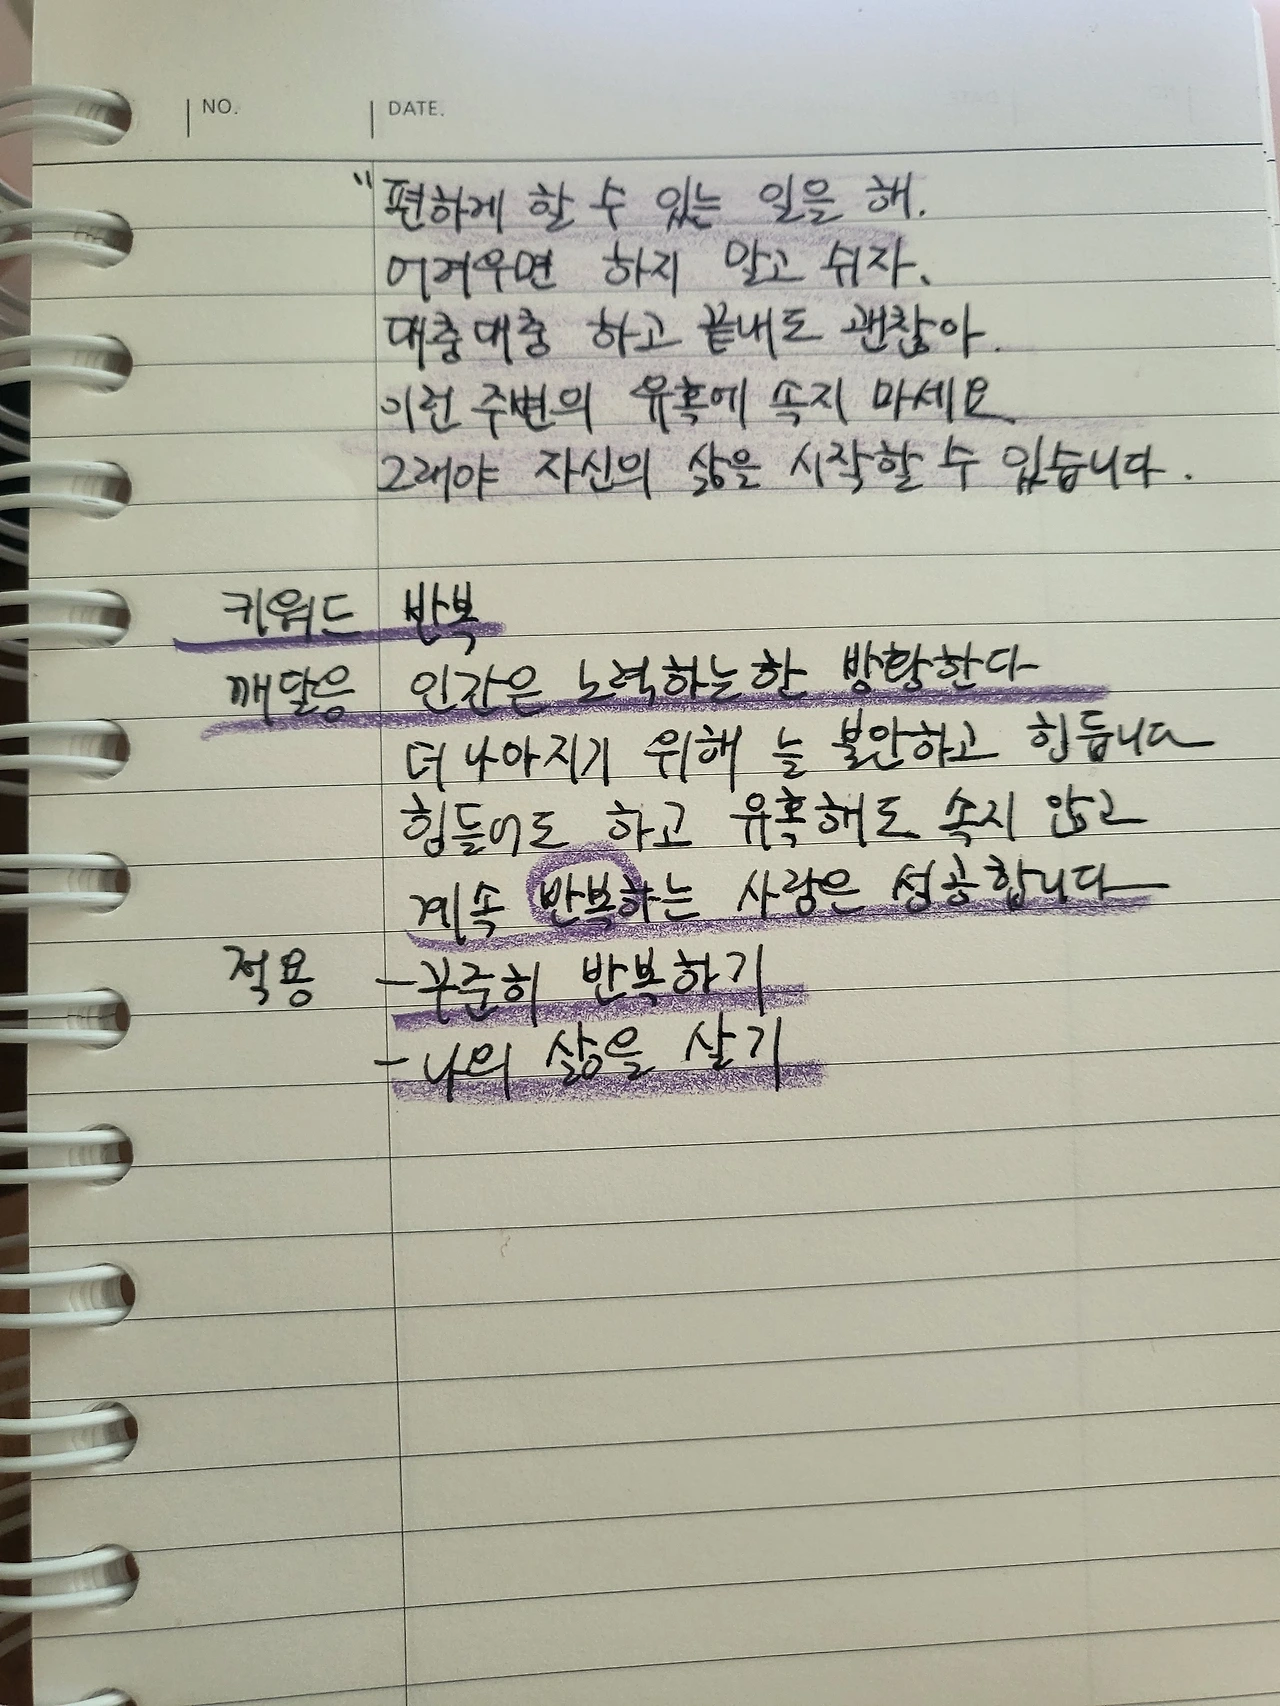 NO. DATE.
“편하게 할 수 있는 일을 해.
어려우면 하지 말고 쉬자.
대충대충 하고 끝내도 괜찮아.
이런 주변의 유혹에 속지 마세요
그래야 자신의 삶을 시작할 수 있습니다.
키워드 반복
깨달음 인간은 노력하는한 방황한다
더 나아지기 위해 늘 불안하고 힘듭니다
힘들어도 하고 유혹해도 속지 않고
계속 반복하는 사람은 성공합니다
적용 -꾸준히 반복하기
-나의 삶을 살기